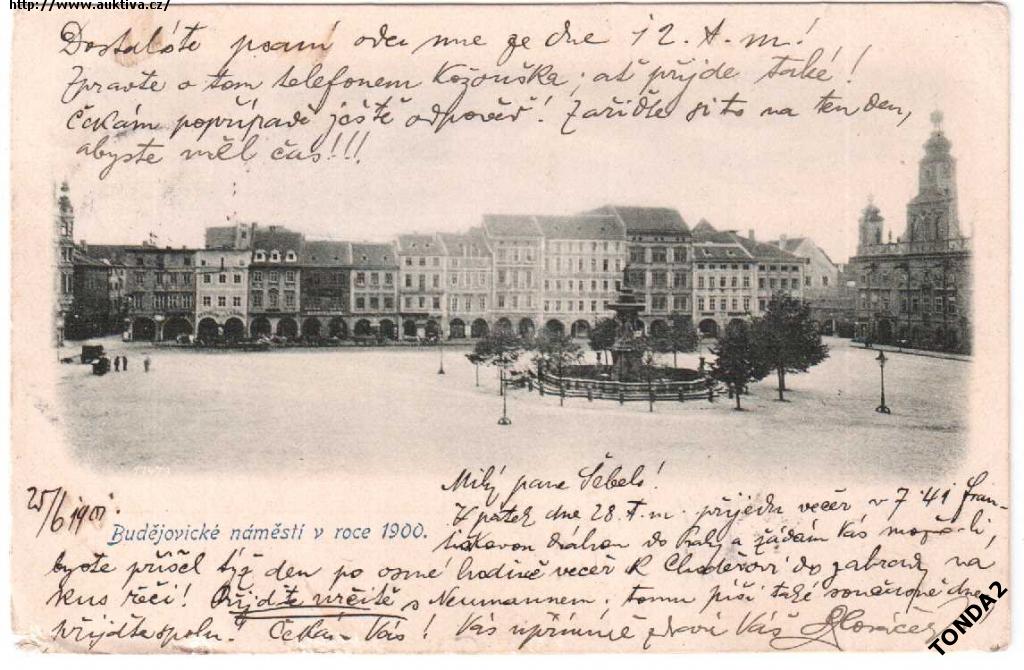 http://www.auktiva.cz/
Dostal jste psaní ode mne ze dne 12. t. m.!
Zpravte o tom telefonem Kožouška, ať přijde také!
Čekám popřípadě ještě odpověď! Zařiďte si to na ten den,
abyste měl čas!!!
Milý pane Šebele!
25/6 1901.
V pátek dne 28. t. m. přijedu večer v 7·41 Fran-
Budějovické náměstí v roce 1900.
tiškovou dráhou do Prahy a žádám Vás možno-li,
byste přišel týž den po osmé hodině večer k Choděrovi do zahrady na
kus řeči! Přijďte určitě s Neumannem, tomu píši také současně dnes
přijďte spolu! Čekám Vás! Vás upřímně zdraví Váš
TONDA2